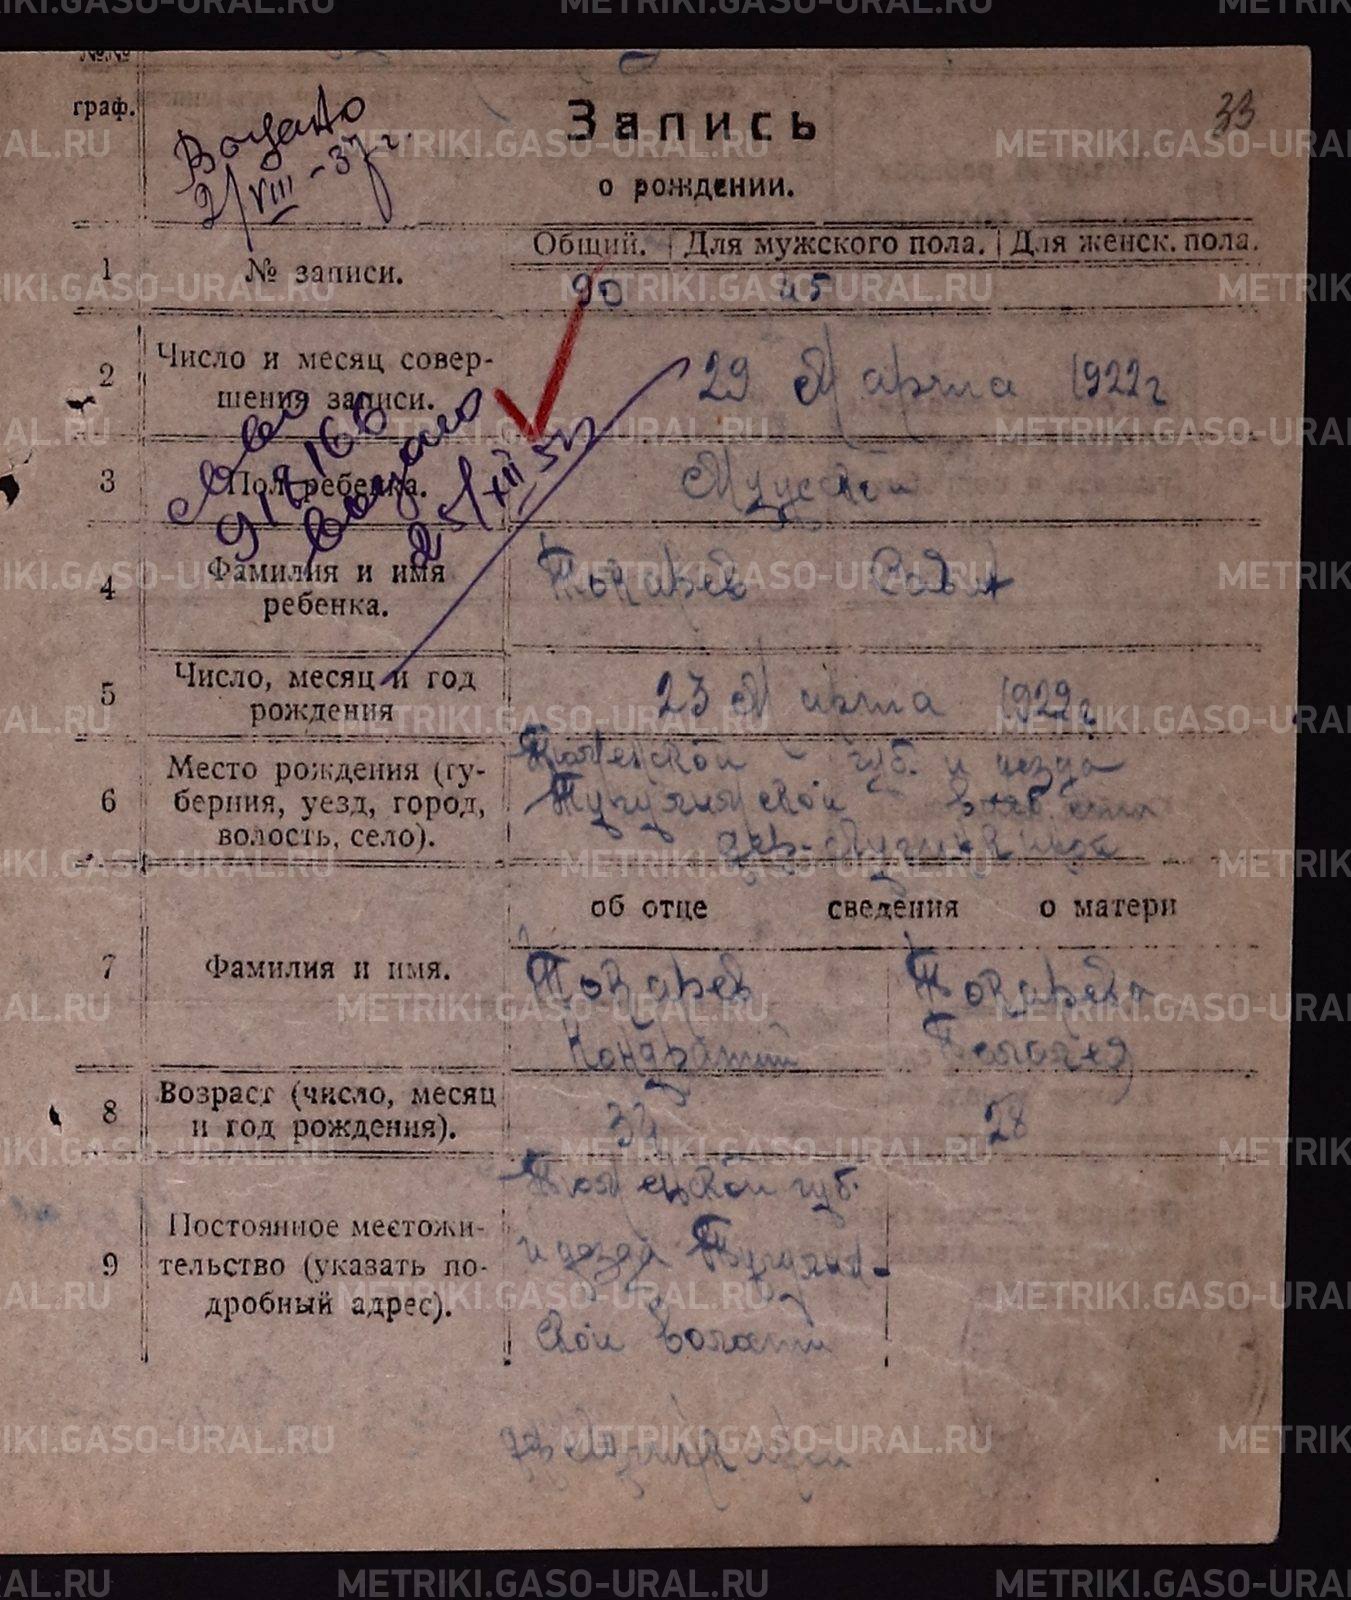 №№
граф.
Выдано
2/VIII-37 г.
33
Запись
о рождении.
Общий. Для мужского пола. Для женск. пола.
1 № записи. 90 45
2 Число и месяц совер-
шения записи.
29 Марта 1922 г
выдано
25/XII 52
3 Пол ребенка. Мужской
4 Фамилия и имя
ребенка.
Токарев
5 Число, месяц и год
рождения
23 Марта 1922 г.
6 Место рождения (гу-
берния, уезд, город,
волость, село).
Тюменской губ. и уезда
Тугулымской волости
дер.
об отце сведения о матери
7 Фамилия и имя.
Токарев Токарева
Кондратий Пелагея
8 Возраст (число, месяц
и год рождения).
28
9 Постоянное местожи-
тельство (указать по-
дробный адрес).
Тюменской губ.
и уезда Тугулым-
ской волости
METRIKI.GASO-URAL.RU